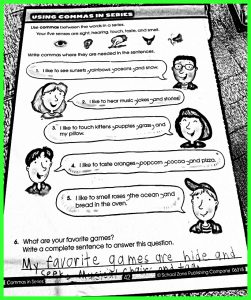 USING COMMAS IN SERIES
Use commas between the words in a series.
Your five senses are sight, hearing, touch, taste, and smell.
Write commas where they are needed in the sentences.
1. I like to see sunsets, rainbows, oceans, and snow.
2. I like to hear music, jokes, and stories.
3. I like to touch kittens, puppies, grass, and
my pillow.
4. I like to taste oranges, popcorn, cocoa, and pizza.
5. I like to smell roses, the ocean, and
bread in the oven.
6. What are your favorite games?
Write a complete sentence to answer this question.
My favorite games are hide and
seek, musical chair, and
Commas in Series
© School Zone Publishing Company